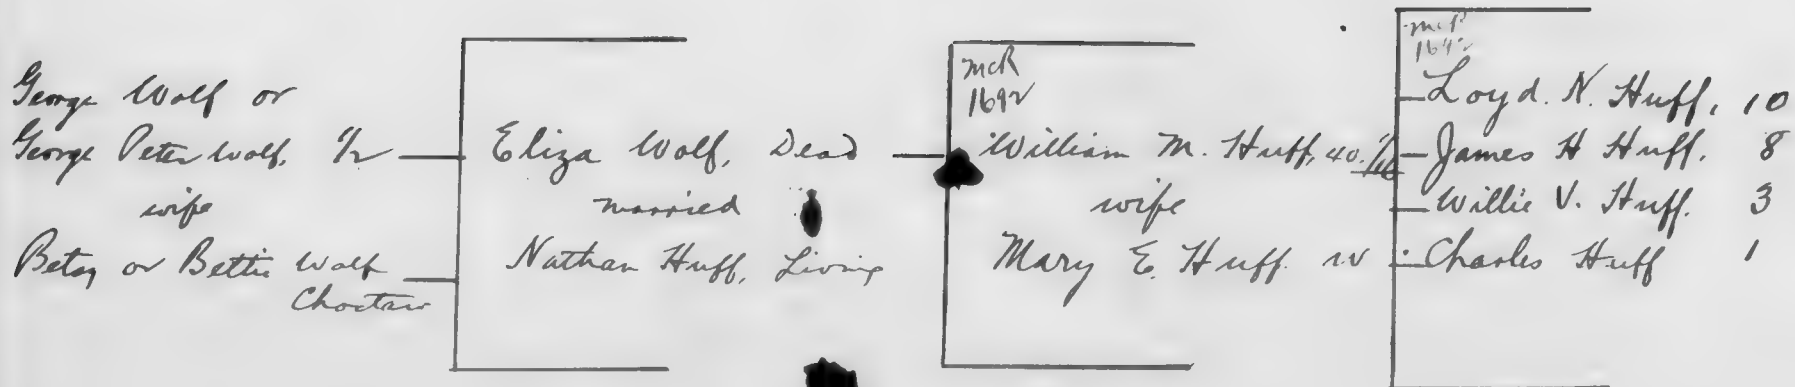 George Wolf or
George Peter Wolf, 1/2
wife
Betsy or Bettie Wolf
Choctaw
Eliza Wolf, Dead
married
Nathan Huff, Living
McR
1692
William M. Huff, 40. 1/16
wife
Mary E. Huff. W
McR
1692
Loyd. N. Huff, 10
James H Huff. 8
Willie V. Huff. 3
Charles Huff 1